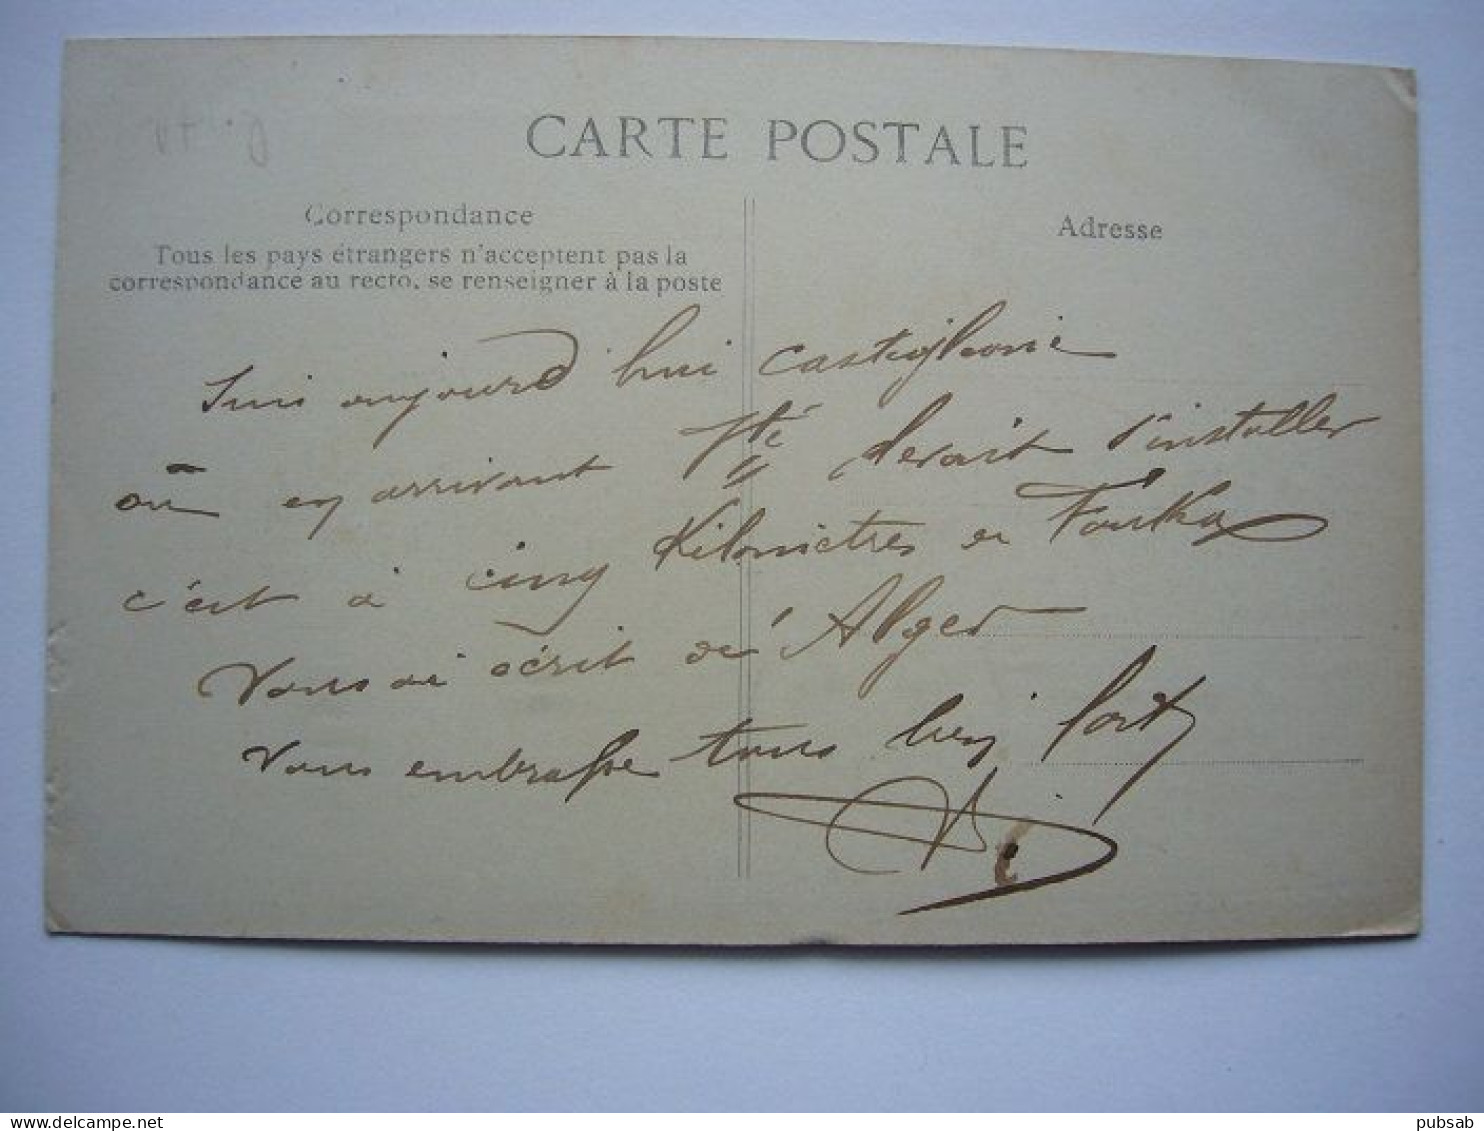 CARTE POSTALE
Correspondance
Tous les pays étrangers n'acceptent pas la
correspondance au recto, se renseigner à la poste
Adresse
Suis aujourd hui Castiglione
où en arrivant Sté devait s'installer
c'est à cinq Kilomètres de Fouka
Vous ai écrit de Alger
Vous embrasse tous bien fort
www.delcampe.net
pubsab